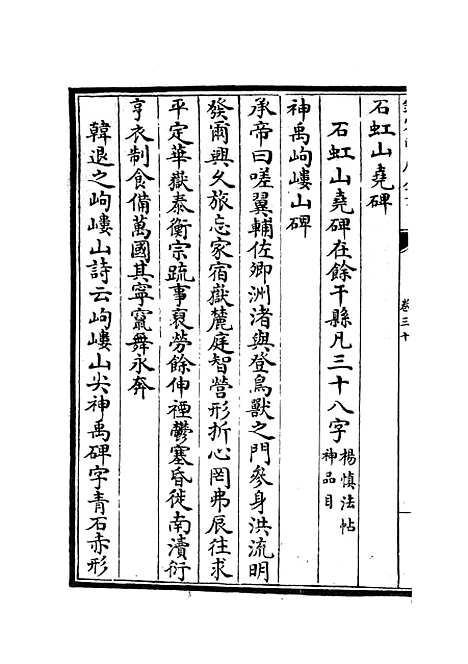 石虹山堯碑
石虹山堯碑在餘干縣凡三十八字楊慎法帖神品目
神禹岣嶁山碑
承帝曰嗟翼輔佐卿洲渚與登鳥獸之門參身洪流明
發爾興久旅忘家宿嶽麓庭智營形折心罔弗辰往求
平定華嶽泰衡宗疏事裒勞餘伸禋鬱塞昏徙南瀆衍
亨衣制食備萬國其寧竄舞永奔
韓退之岣嶁山詩云岣嶁山尖神禹碑字青石赤形
卷三十